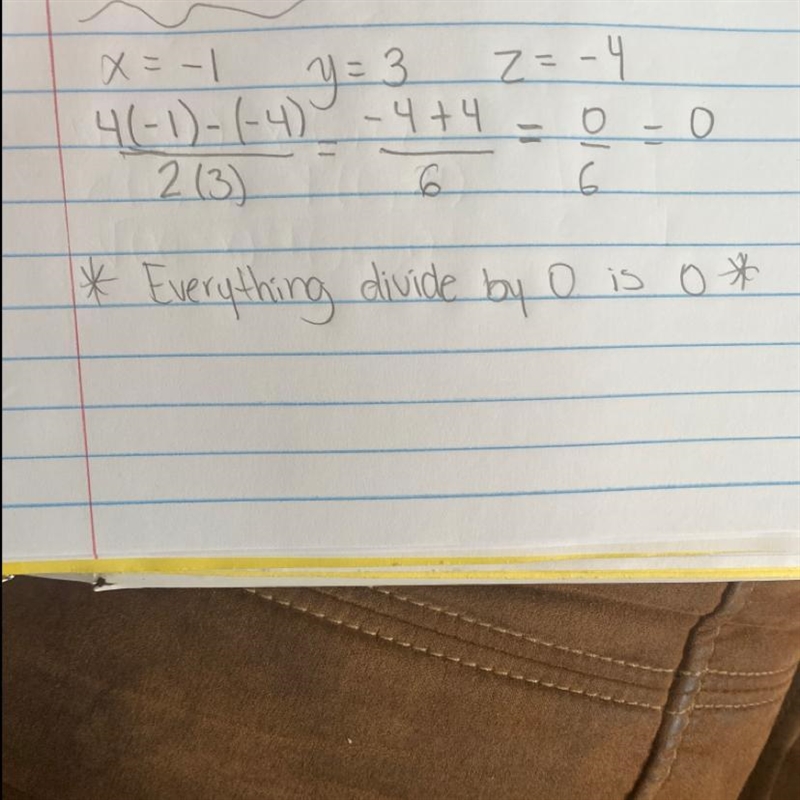 x = -1 y = 3 z = -4
4(-1)-(-4) / 2(3) = -4+4 / 6 = 0 / 6 = 0
* Everything divide by 0 is 0 *